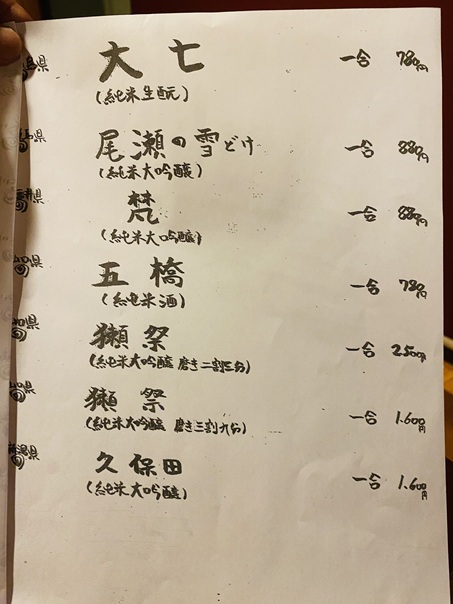 島県 大七 一合 780円
(純米生酛)
馬県 尾瀬の雪どけ 一合 880円
(純米大吟醸)
井県 梵 一合 880円
(純米大吟醸)
山口県 五橋 一合 780円
(純米酒)
口県 獺祭 一合 2.500円
(純米大吟醸 磨き二割三分)
山口県 獺祭 一合 1.600円
(純米大吟醸 磨き三割九分)
新潟県 久保田 一合 1.600円
(純米大吟醸)